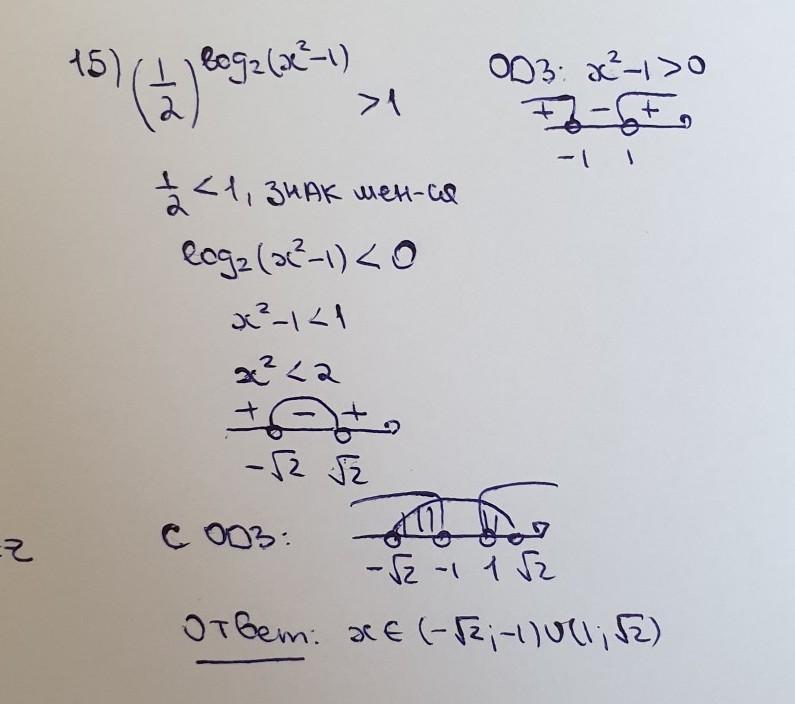 15) (1/2)^log₂(x²-1) > 1
ОДЗ: x²-1>0
+ - +
-1 1
1/2 < 1, знак мен-ся
log₂(x²-1) < 0
x²-1 < 1
x² < 2
+ - +
-√2 √2
-2
С ОДЗ:
-√2 -1 1 √2
Ответ: x ∈ (-√2; -1) ∪ (1; √2)